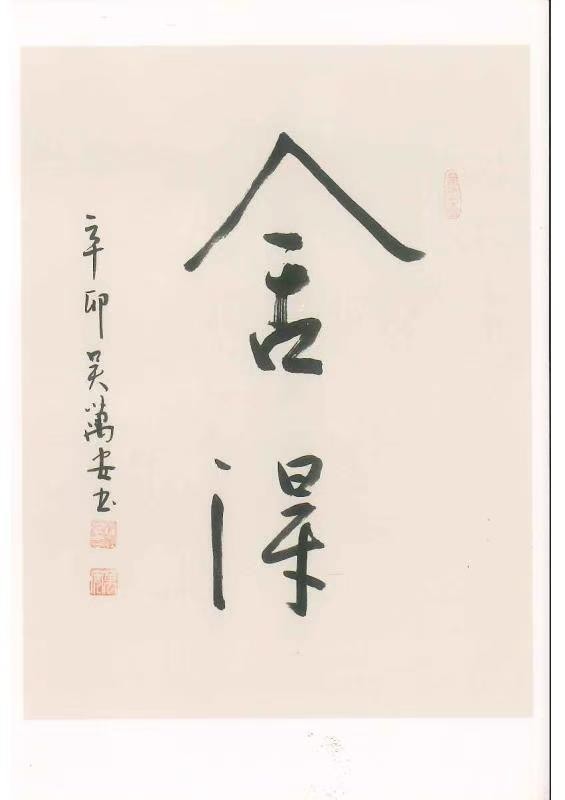 舍得
辛卯 吴萬安书